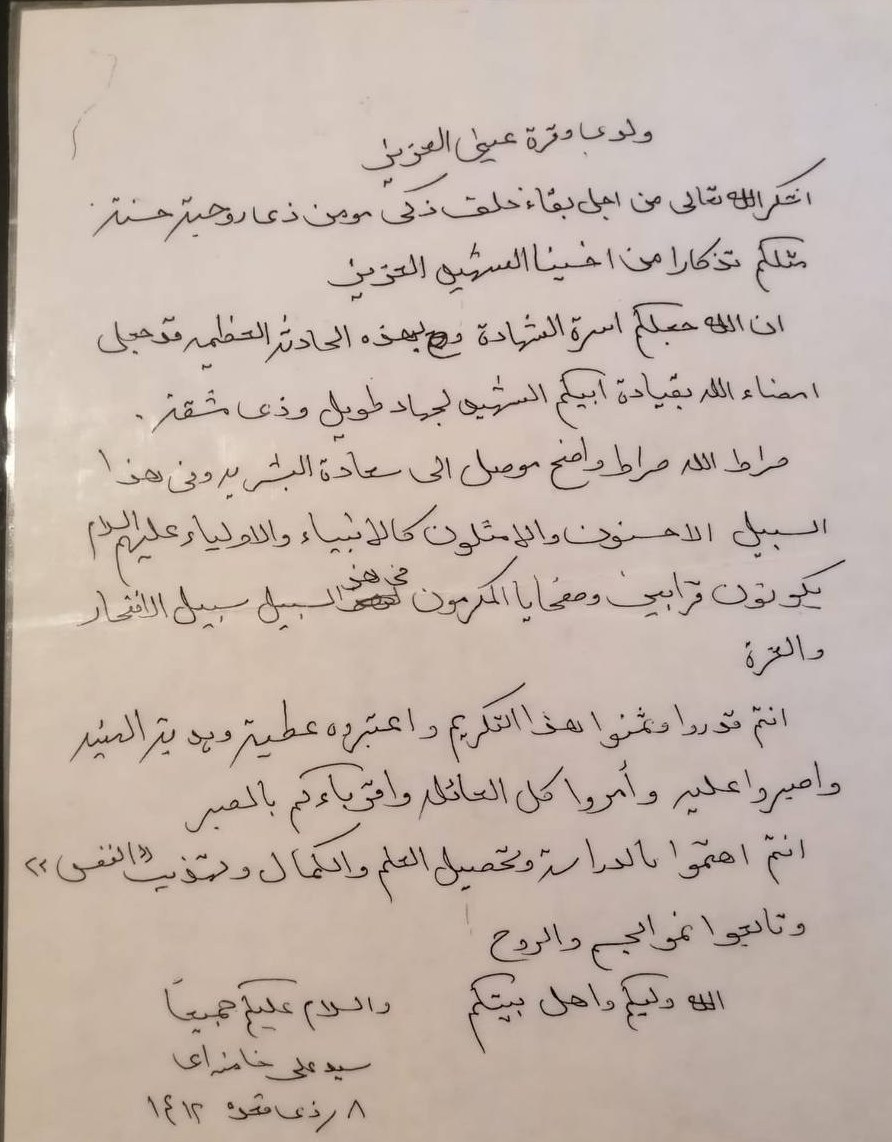 ولدي وقرة عيني العزيز
اشكر الله تعالى من اجل بقاء خلف ذكي مومن ذي روحية حسنة
مثلكم تذكارا من اخينا الشهيد العزيز
ان الله جعلكم اسرة الشهادة وبهذه الحادثة العظيمة قد جعل
امضاء الله بقيادة ابيكم الشهيد لجهاد طويل وذي مشقة.
صراط الله صراط واضح موصل الى سعادة البشرية وفي هذا
السبيل الاحسنون والامثلون كالانبياء والاولياء عليهم السلام
يكونون قرابين وضحايا المكرمون في هذا السبيل سبيل الافتخار
والعزة
انتم قدروا وثمنوا هذا التكريم واعتبروه عطية وهدية الهية
واصبروا عليه وأمروا كل العائلة واقرباءكم بالصبر
انتم اهتموا بالدراسة وتحصيل العلم والكمال وتهذيب «النفس»
وتابعوا نمو الجسم والروح
الله وليكم واهل بيتكم والسلام عليكم جميعاً
سيد علي خامنه اى
٨ / ذى قعده ١٤١٢